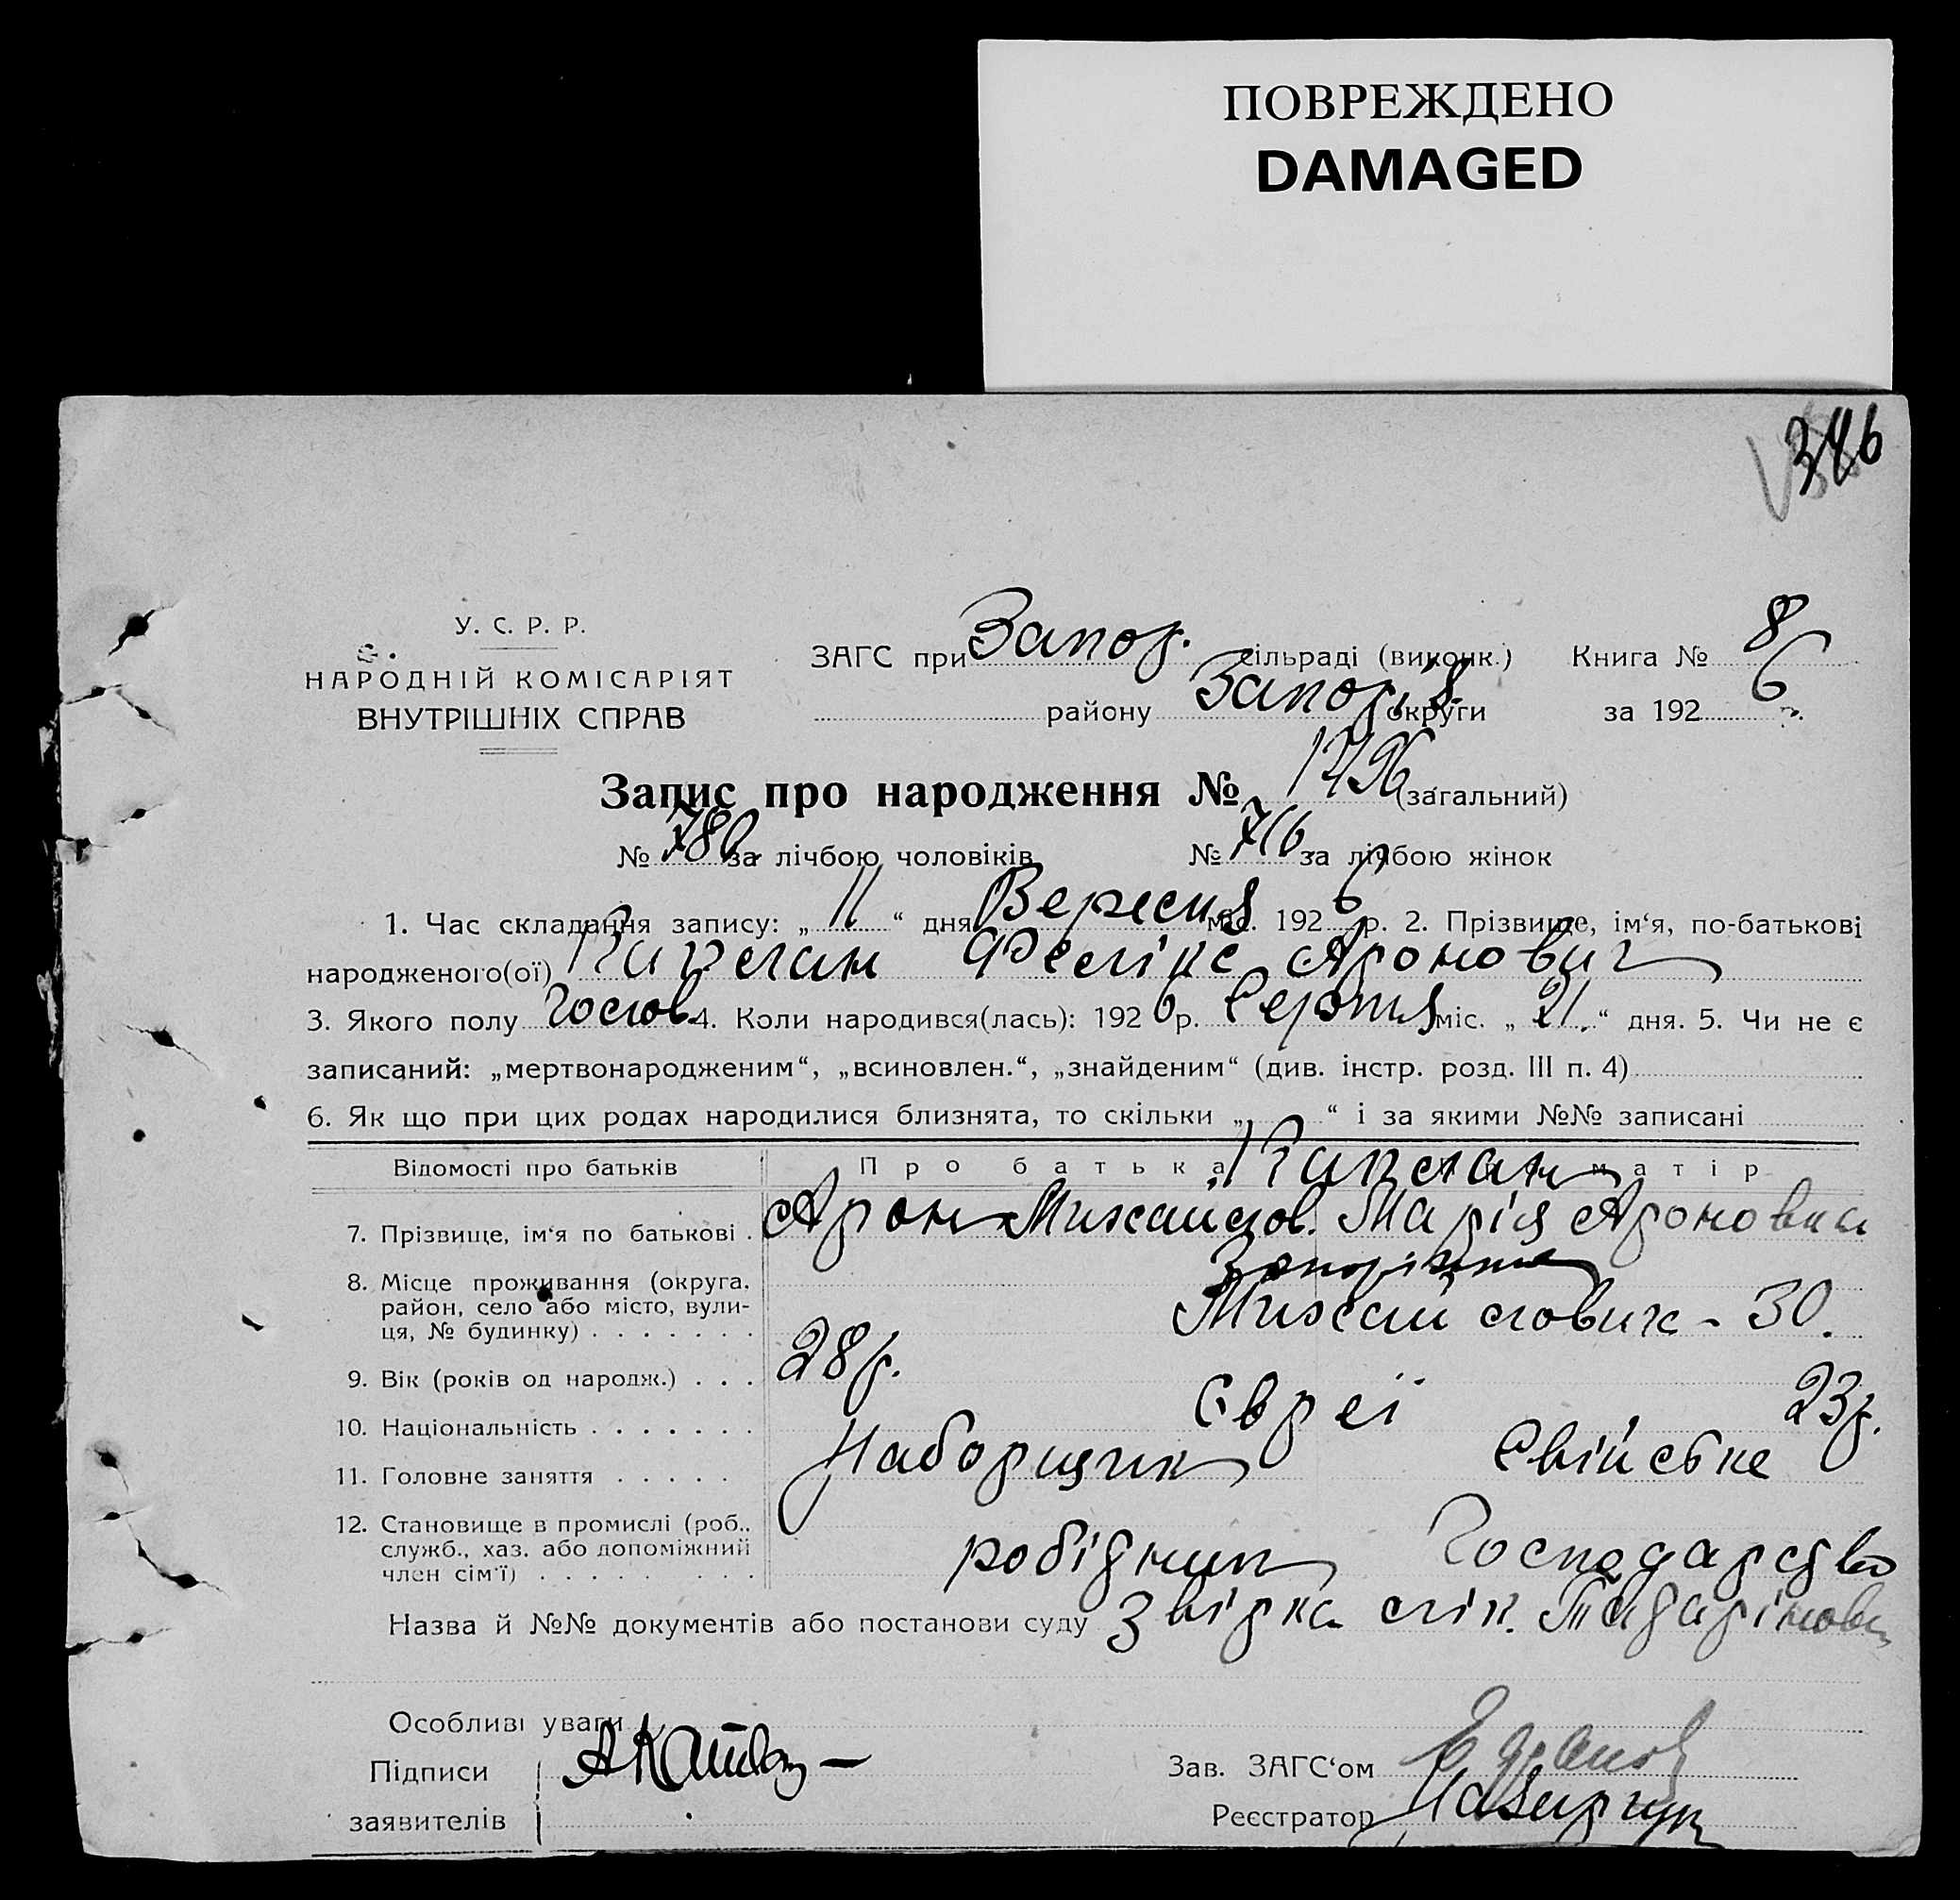 ПОВРЕЖДЕНО
DAMAGED
346
У. С. Р. Р.
НАРОДНІЙ КОМІСАРІЯТ
ВНУТРІШНІХ СПРАВ
ЗАГС при Запор. сільраді (виконк.) Книга № 8
району Запоріз. округи за 1926 р.
Запис про народження № 1496 (загальний)
№ 780 за лічбою чоловіків № 716 за лічбою жінок
1. Час складання запису: „ 11 “ дня Вересня міс. 1926 р. 2. Прізвище, ім‘я, по-батькові
народженого(ої) Каплан Фелікс Аронович
3. Якого полу Чолов. 4. Коли народився(лась): 1926 р. Серпня міс. „ 21. “ дня. 5. Чи не є
записаний: „мертвонародженим“, „всиновлен.“, „знайденим“ (див. інстр. розд. III п. 4)
6. Як що при цих родах народилися близнята, то скільки „ “ і за якими №№ записані
Відомості про батьків Про батька матір
Каплан
7. Прізвище, ім‘я по батькові . Арон Михайлов. Марія Ароновна
8. Місце проживання (округа. Запоріжжя
район, село або місто, вули- Михайлович - 30.
ця, № будинку) . . . . . . .
9. Вік (років од народж.) . . . 28 р. 23 р.
10. Національність . . . . . . . Євреї
11. Головне заняття . . . . . Наборщик Свійське
12. Становище в промислі (роб.. робідник Господарство
служб., хаз. або допоміжний
член сім‘ї) . . . . . . . . .
Назва й №№ документів або постанови суду Звірка лік.
Особливі уваги
Підписи АКаплан – Зав. ЗАГС‘ом
заявителів Реєстратор